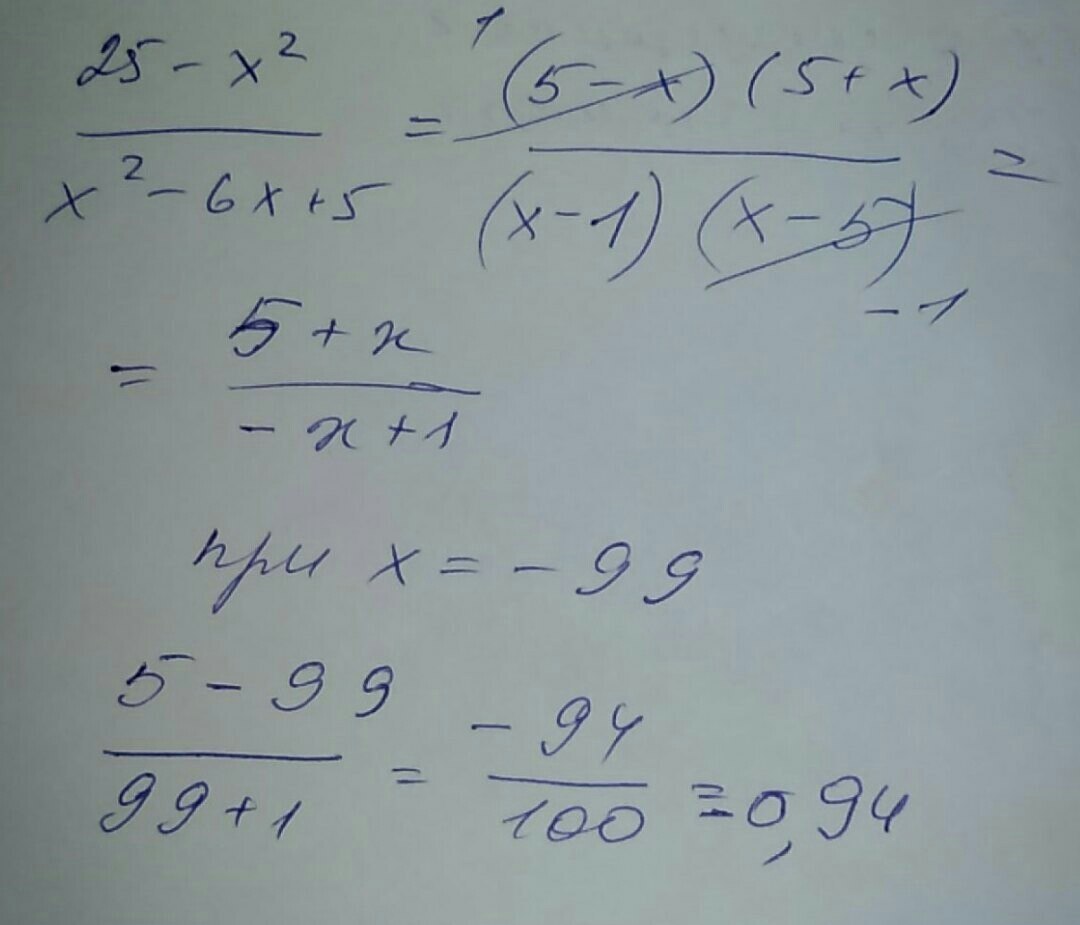 25 - x² / x² - 6x + 5 = ¹(5 - x)(5 + x) / (x - 1)(x - 5)₋₁ =
= 5 + x / - x + 1
при x = - 99
5 - 99 / 99 + 1 = - 94 / 100 = -0,94